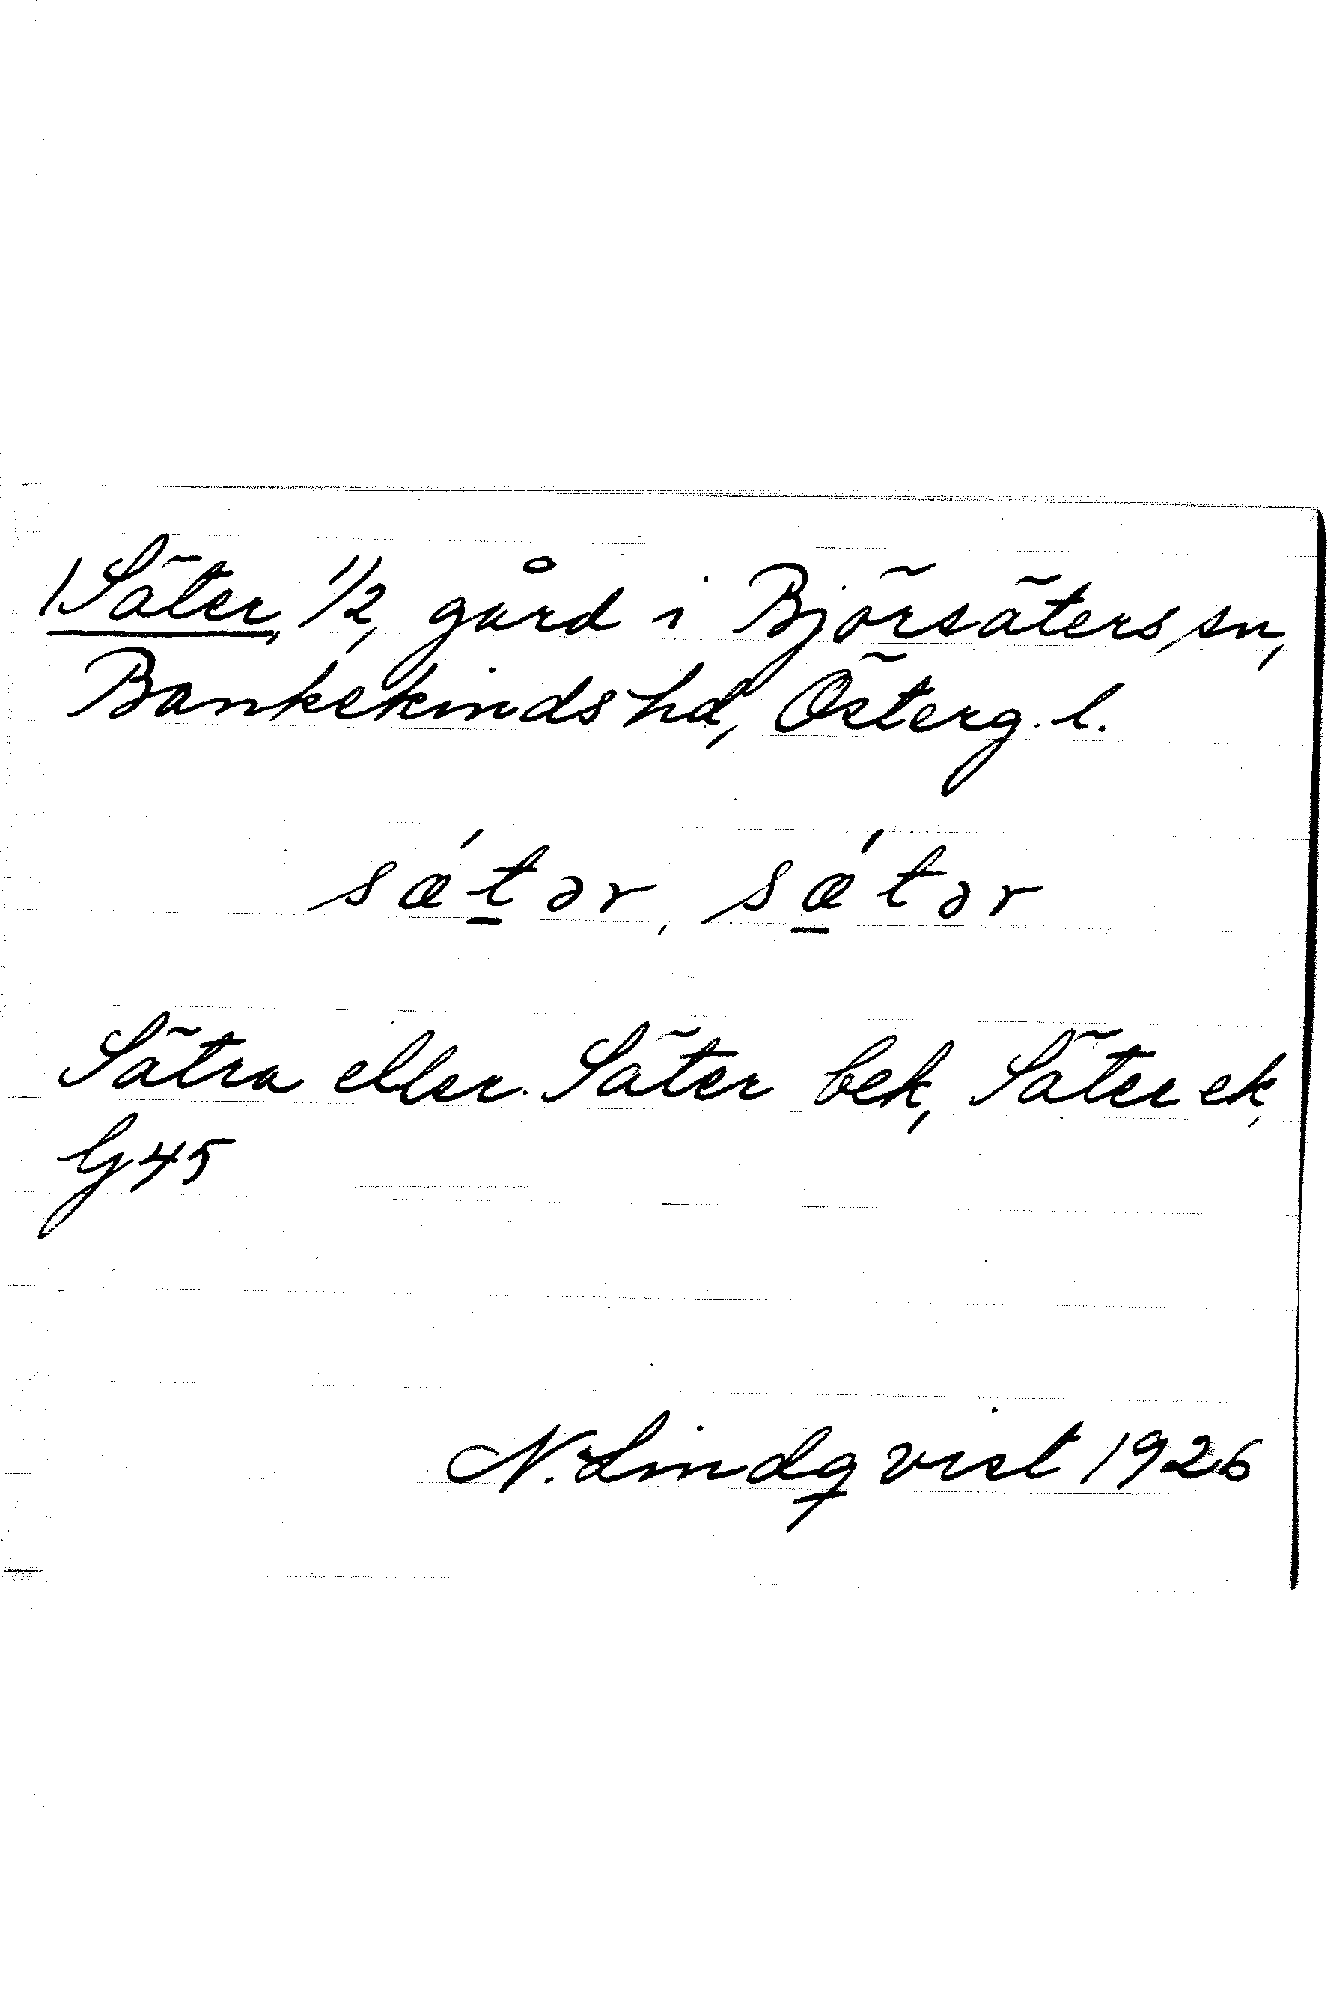 1 Säter, 1/2, gård i Björsäters sn,
Bankekinds hd, Österg. l.
sǽt̲ər, sǽ̲tər
Sätra eller Säter bek, Säter ek,
G 45
N. Lindqvist 1926